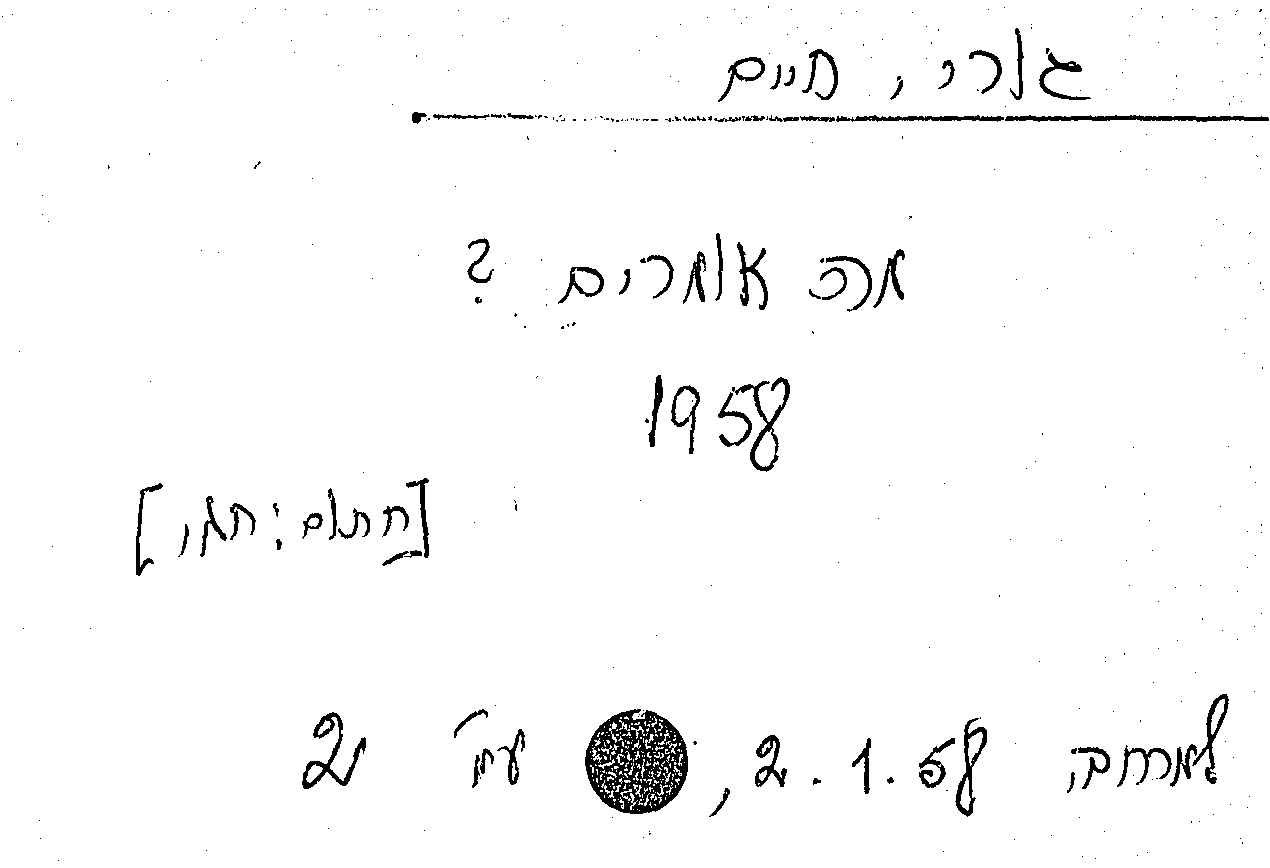 גורי, חיים
מה אומרים ?
1958
[חתום: חגי]
למרחב, 2.1.58, עמ' 2